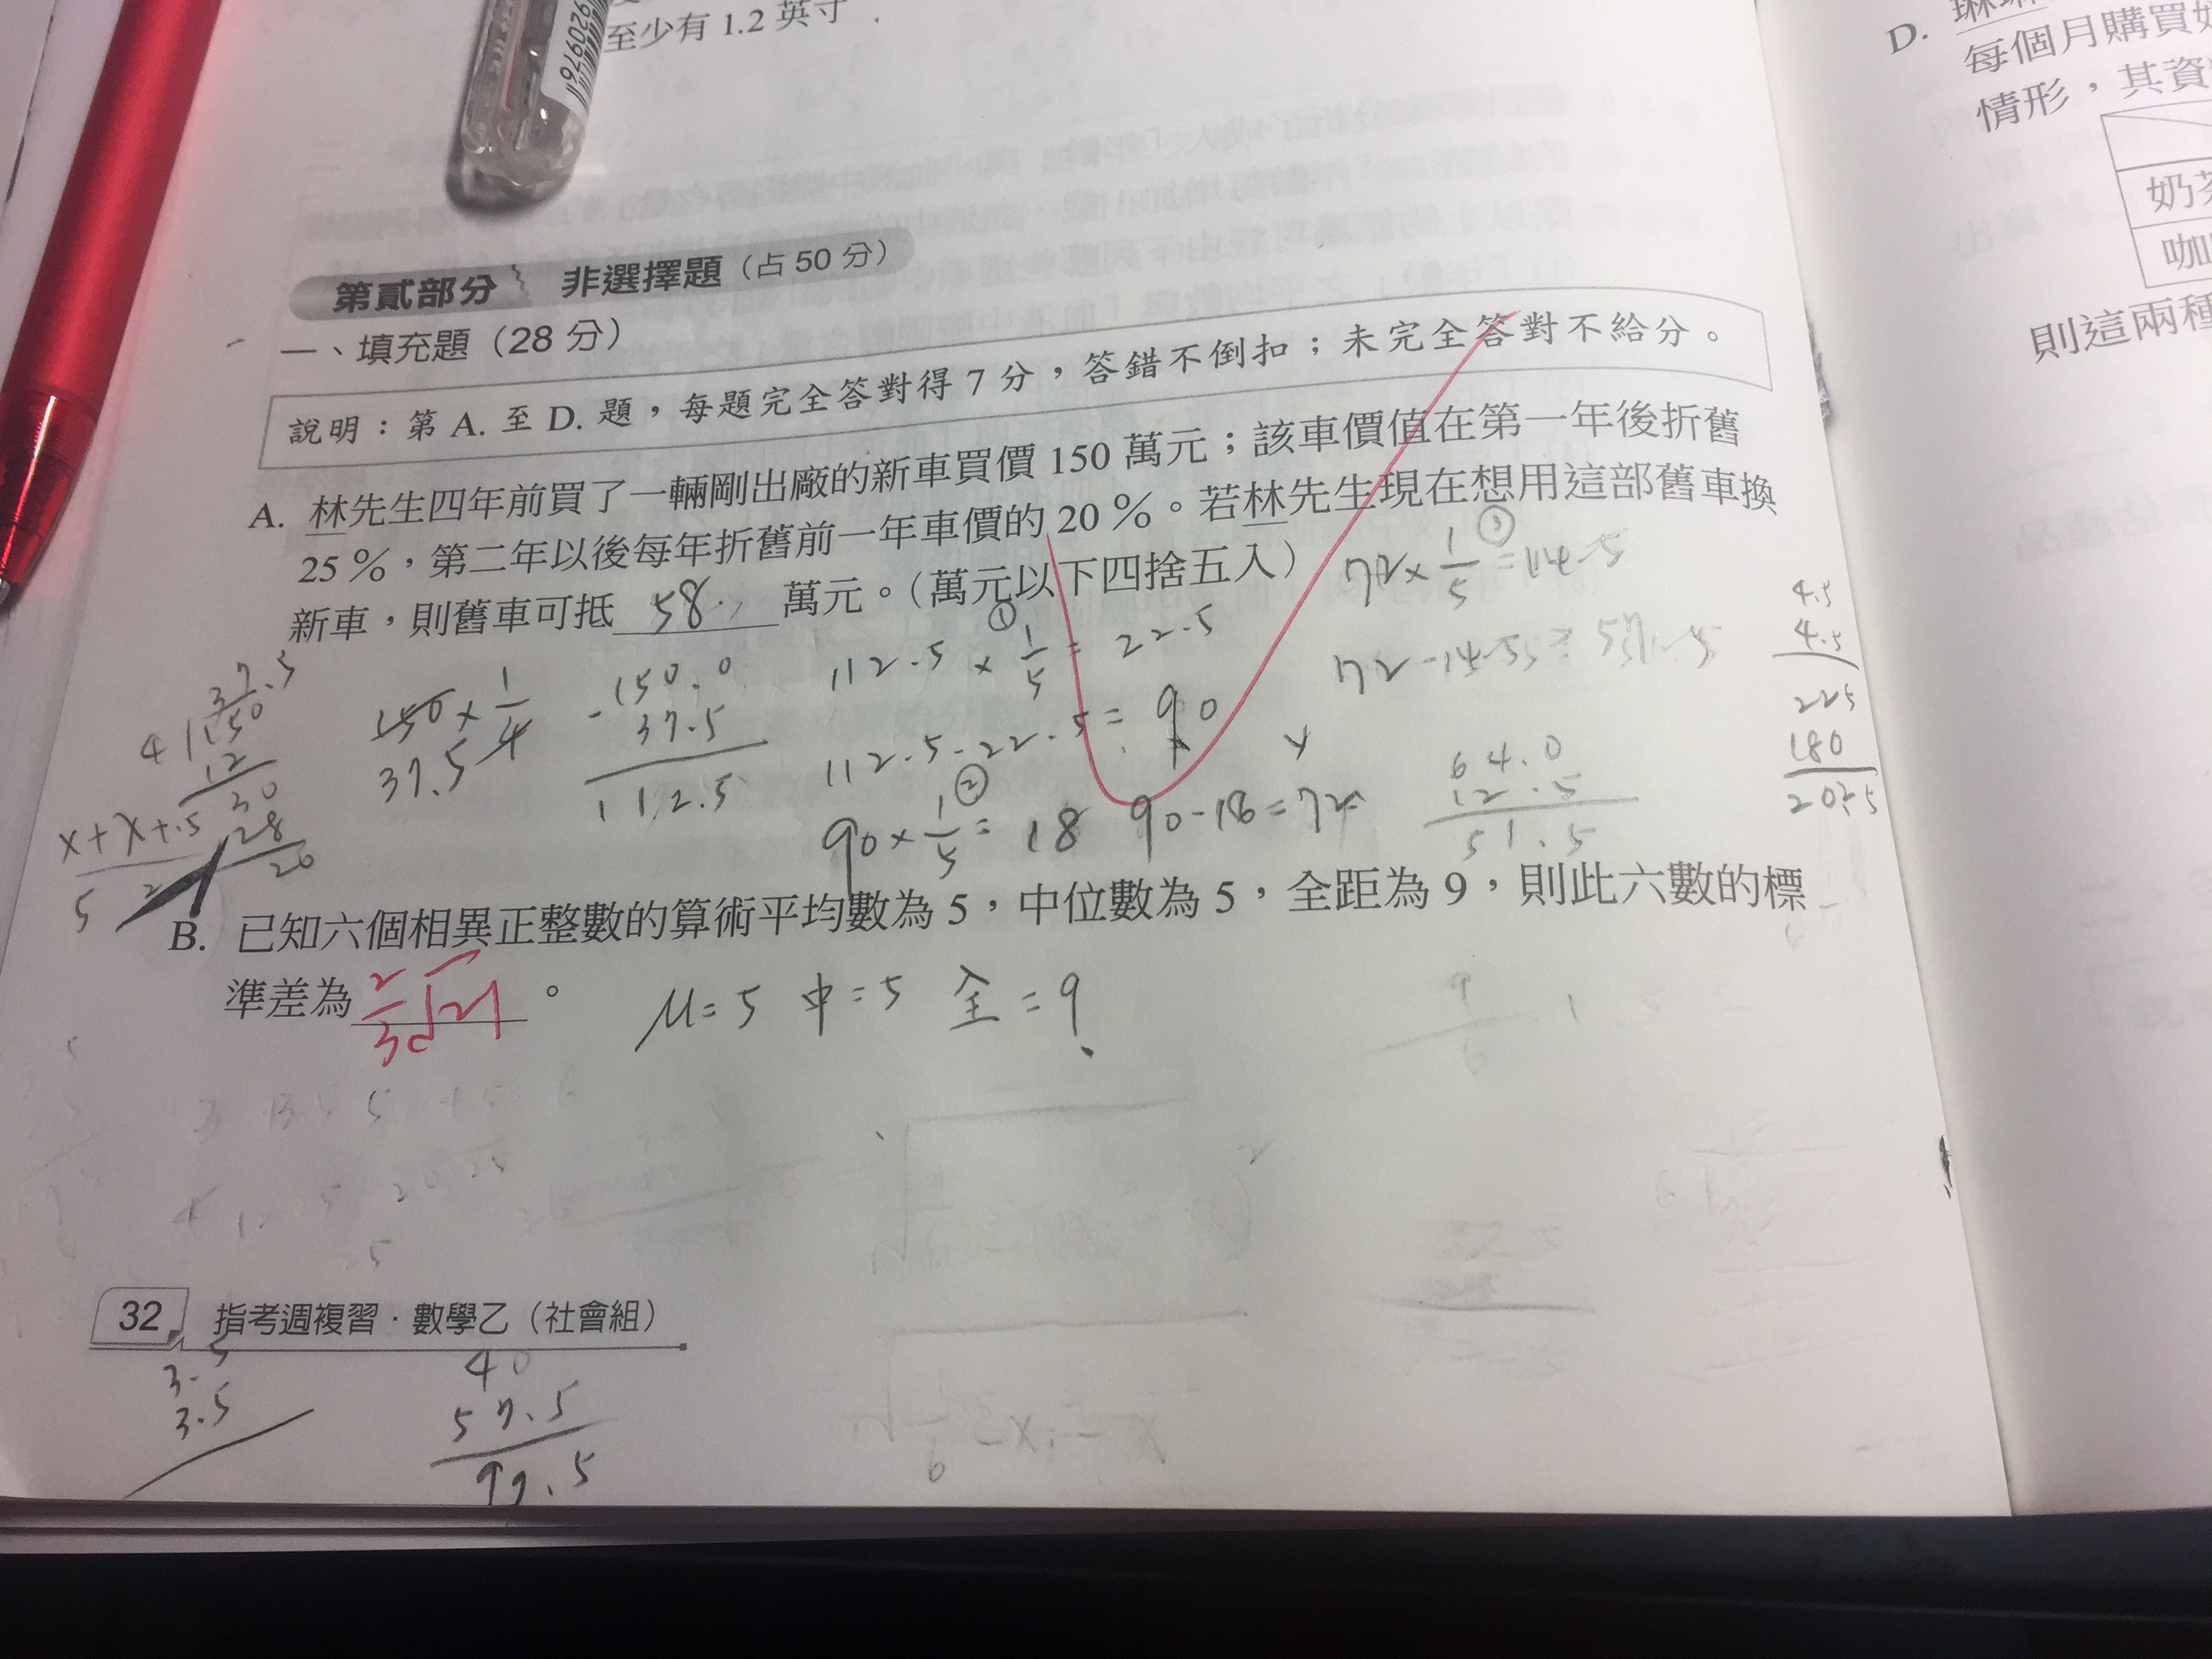 9290976
至少有 1.2 英寸
第貳部分 非選擇題（占 50 分）
一、填充題（28 分）
說明：第 A. 至 D. 題，每題完全答對得 7 分，答錯不倒扣；未完全答對不給分。
A. 林先生四年前買了一輛剛出廠的新車買價 150 萬元；該車價值在第一年後折舊
25 %，第二年以後每年折舊前一年車價的 20 %。若林先生現在想用這部舊車換
新車，則舊車可抵 58 萬元。（萬元以下四捨五入）
150 × 1/4
37.5
150.0
- 37.5
112.5
①
112.5 × 1/5 = 22.5
112.5 - 22.5 = 90
②
90 × 1/5 = 18 90 - 18 = 72
③
72 × 1/5 = 14.5
72 - 14.5 = 57.5
64.0
12.5
51.5
4.5
4.5
225
180
2025
37.5
4 150
12
30
28
20
x + x + .5
2
5
B. 已知六個相異正整數的算術平均數為 5，中位數為 5，全距為 9，則此六數的標
準差為 2/3 √21 。
μ = 5 中 = 5 全 = 9
32 指考週複習．數學乙（社會組）
3.5
3.5
40
57.5
97.5
D. 琳琳
每個月購買奶
情形，其資
奶茶
咖
則這兩種